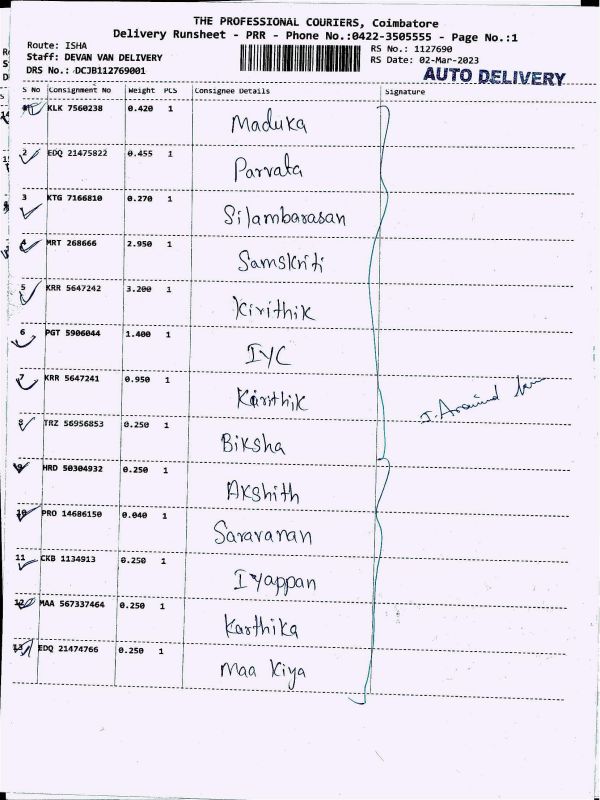 THE PROFESSIONAL COURIERS, Coimbatore
Delivery Runsheet - PRR - Phone No.:0422-3505555 - Page No.:1
Route: ISHA
Staff: DEVAN VAN DELIVERY
DRS No.: DCJB112769001
RS No.: 1127690
RS Date: 02-Mar-2023
AUTO DELIVERY
S No Consignment No Weight PCS Consignee Details Signature
1 KLK 7560238 0.420 1 Maduka
2 EDQ 21475822 0.455 1 Parvata
3 KTG 7166810 0.270 1 Silambarasan
4 MRT 268666 2.950 1 Samskriti
5 KRR 5647242 3.200 1 Kirithik
6 PGT 5906044 1.400 1 IYC
7 KRR 5647241 0.950 1 Karithik
J. Aravind
8 TRZ 56956853 0.250 1 Biksha
9 HRD 50304932 0.250 1 Akshith
10 PRO 14686150 0.040 1 Saravanan
11 CKB 1134913 0.250 1 Iyappan
12 MAA 567337464 0.250 1 Karthika
13 EDQ 21474766 0.250 1 Maa Kiya